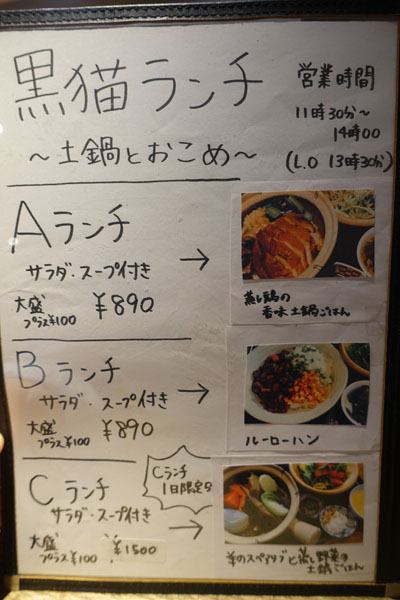 黒猫ランチ
～土鍋とおこめ～
営業時間
11時30分～
14時00
(L.O 13時30分)
Aランチ
サラダ・スープ付き
大盛
プラス¥100
¥890
→
蒸し鶏の
香味土鍋ごはん
Bランチ
サラダ・スープ付き
大盛
プラス¥100
¥890
→
ルーローハン
Cランチ
1日限定
Cランチ
サラダ・スープ付き
大盛
プラス¥100
¥1500
→
羊のスペアリブと蒸し野菜の
土鍋ごはん